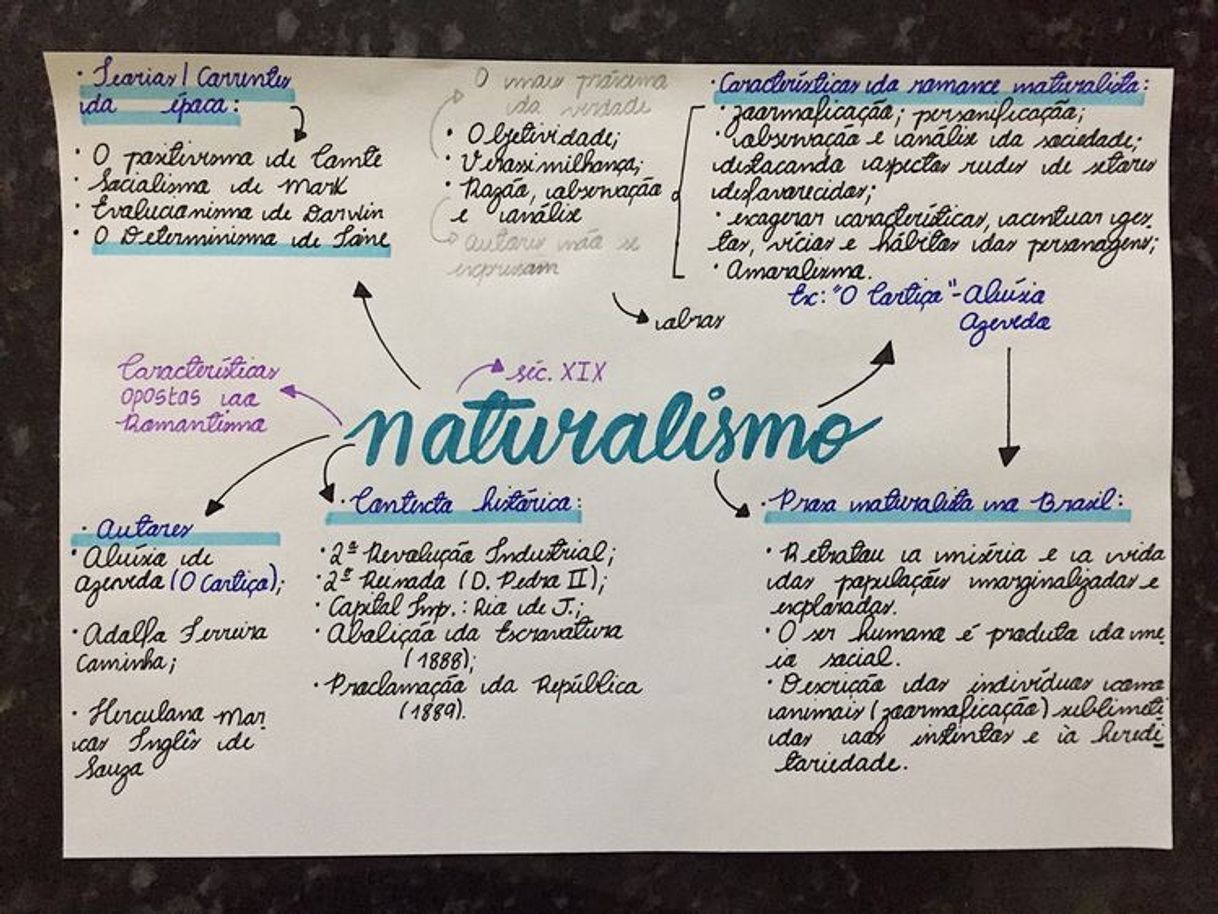 · Teorias/Correntes
da época:
· O positivismo de Comte
· Socialismo de Mark
· Evolucionismo de Darwin
· O Determinismo de Taine
O mais próximo
da verdade
· Objetividade;
· Verossimilhança;
· Razão, observação
e análise
autores não se
expressam
obras
· Características do romance naturalista:
· zoormoficação; personificação;
· observação e análise da sociedade;
destacando aspectos rudes de setores
desfavorecidos;
· exagerar características, acentuar ges-
tos, vícios e hábitos dos personagens;
· Amoralismo.
Ex: "O Cortiço" - Aluísio
Azevedo
Características
opostas ao
Romantismo
séc. XIX
naturalismo
· Autores
· Aluísio de
azevedo (O Cortiço);
· Adolfo Ferreira
Caminha;
· Herculano Mar
cos Inglês de
Souza
· Contexto histórico:
· 2ª Revolução Industrial;
· 2º Reinado (D. Pedro II);
· Capital Imp.: Rio de J.;
· Abolição da Escravatura
(1888);
· Proclamação da República
(1889).
· Prosa naturalista no Brasil:
· Retratou a miséria e a vida
das populações marginalizadas e
exploradas.
· O ser humano é produto do me
io social.
· Descrição dos indivíduos como
animais (zoormoficação) sublimeti
dos aos intintos e à heredi
tariedade.